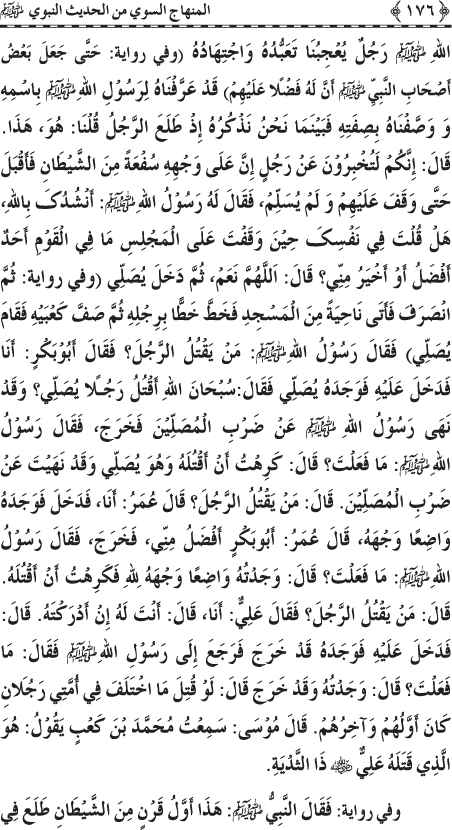 ﴿١٧٦﴾ المنهاج السوي من الحديث النبوي ﷺ
اللهِ ﷺ رَجُلٌ يُعْجِبُنَا تَعَبُّدُهُ وَاجْتِهَادُهُ (وفي رواية: حَتَّى جَعَلَ بَعْضُ
أَصْحَابِ النَّبِيِّ ﷺ أَنَّ لَهُ فَضْلًا عَلَيْهِمْ) قَدْ عَرَّفْنَاهُ لِرَسُوْلِ اللهِ ﷺ بِاسْمِهِ
وَ وَصَّفْنَاهُ بِصِفَتِهِ فَبَيْنَمَا نَحْنُ نَذْكُرُهُ إِذْ طَلَعَ الرَّجُلُ قُلْنَا: هُوَ، هَذَا.
قَالَ: إِنَّكُمْ لَتُخْبِرُوْنَ عَنْ رَجُلٍ إِنَّ عَلَى وَجْهِهِ سُفْعَةً مِنَ الشَّيْطَانِ فَأَقْبَلَ
حَتَّى وَقَفَ عَلَيْهِمْ وَ لَمْ يُسَلِّمْ، فَقَالَ لَهُ رَسُوْلُ اللهِ ﷺ: أَنْشُدُكَ بِاللهِ،
هَلْ قُلْتَ فِي نَفْسِكَ حِيْنَ وَقَفْتَ عَلَى الْمَجْلِسِ مَا فِي الْقَوْمِ أَحَدٌ
أَفْضَلُ أَوْ أَخْيَرُ مِنِّي؟ قَالَ: اَللَّهُمَّ نَعَمْ، ثُمَّ دَخَلَ يُصَلِّي (وفي رواية: ثُمَّ
انْصَرَفَ فَأَتَى نَاحِيَةً مِنَ الْمَسْجِدِ فَخَطَّ خَطًّا بِرِجْلِهِ ثُمَّ صَفَّ كَعْبَيْهِ فَقَامَ
يُصَلِّي) فَقَالَ رَسُوْلُ اللهِ ﷺ: مَنْ يَقْتُلُ الرَّجُلَ؟ فَقَالَ أَبُوْبَكْرٍ: أَنَا
فَدَخَلَ عَلَيْهِ فَوَجَدَهُ يُصَلِّي فَقَالَ:سُبْحَانَ اللهِ أَقْتُلُ رَجُلًا يُصَلِّي؟ وَقَدْ
نَهَى رَسُوْلُ اللهِ ﷺ عَنْ ضَرْبِ الْمُصَلِّيْنَ فَخَرَجَ، فَقَالَ رَسُوْلُ
اللهِ ﷺ: مَا فَعَلْتَ؟ قَالَ: كَرِهْتُ أَنْ أَقْتُلَهُ وَهُوَ يُصَلِّي وَقَدْ نَهَيْتَ عَنْ
ضَرْبِ الْمُصَلِّيْنَ. قَالَ: مَنْ يَقْتُلُ الرَّجُلَ؟ قَالَ عُمَرُ: أَنَا، فَدَخَلَ فَوَجَدَهُ
وَاضِعًا وَجْهَهُ، قَالَ عُمَرُ: أَبُوْبَكْرٍ أَفْضَلُ مِنِّي، فَخَرَجَ، فَقَالَ رَسُوْلُ
اللهِ ﷺ: مَا فَعَلْتَ؟ قَالَ: وَجَدْتُهُ وَاضِعًا وَجْهَهُ لِلّٰهِ فَكَرِهْتُ أَنْ أَقْتُلَهُ.
قَالَ: مَنْ يَقْتُلُ الرَّجُلَ؟ فَقَالَ عَلِيٌّ: أَنَا، قَالَ: أَنْتَ لَهُ إِنْ أَدْرَكْتَهُ. قَالَ:
فَدَخَلَ عَلَيْهِ فَوَجَدَهُ قَدْ خَرَجَ فَرَجَعَ إِلَى رَسُوْلِ اللهِ ﷺ فَقَالَ: مَا
فَعَلْتَ؟ قَالَ: وَجَدْتُهُ وَقَدْ خَرَجَ قَالَ: لَوْ قُتِلَ مَا اخْتَلَفَ فِي أُمَّتِي رَجُلَانِ
كَانَ أَوَّلُهُمْ وَآخِرُهُمْ. قَالَ مُوْسَى: سَمِعْتُ مُحَمَّدَ بْنَ كَعْبٍ يَقُوْلُ: هُوَ
الَّذِي قَتَلَهُ عَلِيٌّ ؓ ذَا الثُّدَيَةِ.
وفي رواية: فَقَالَ النَّبِيُّ ﷺ: هَذَا أَوَّلُ قَرْنٍ مِنَ الشَّيْطَانِ طَلَعَ فِي